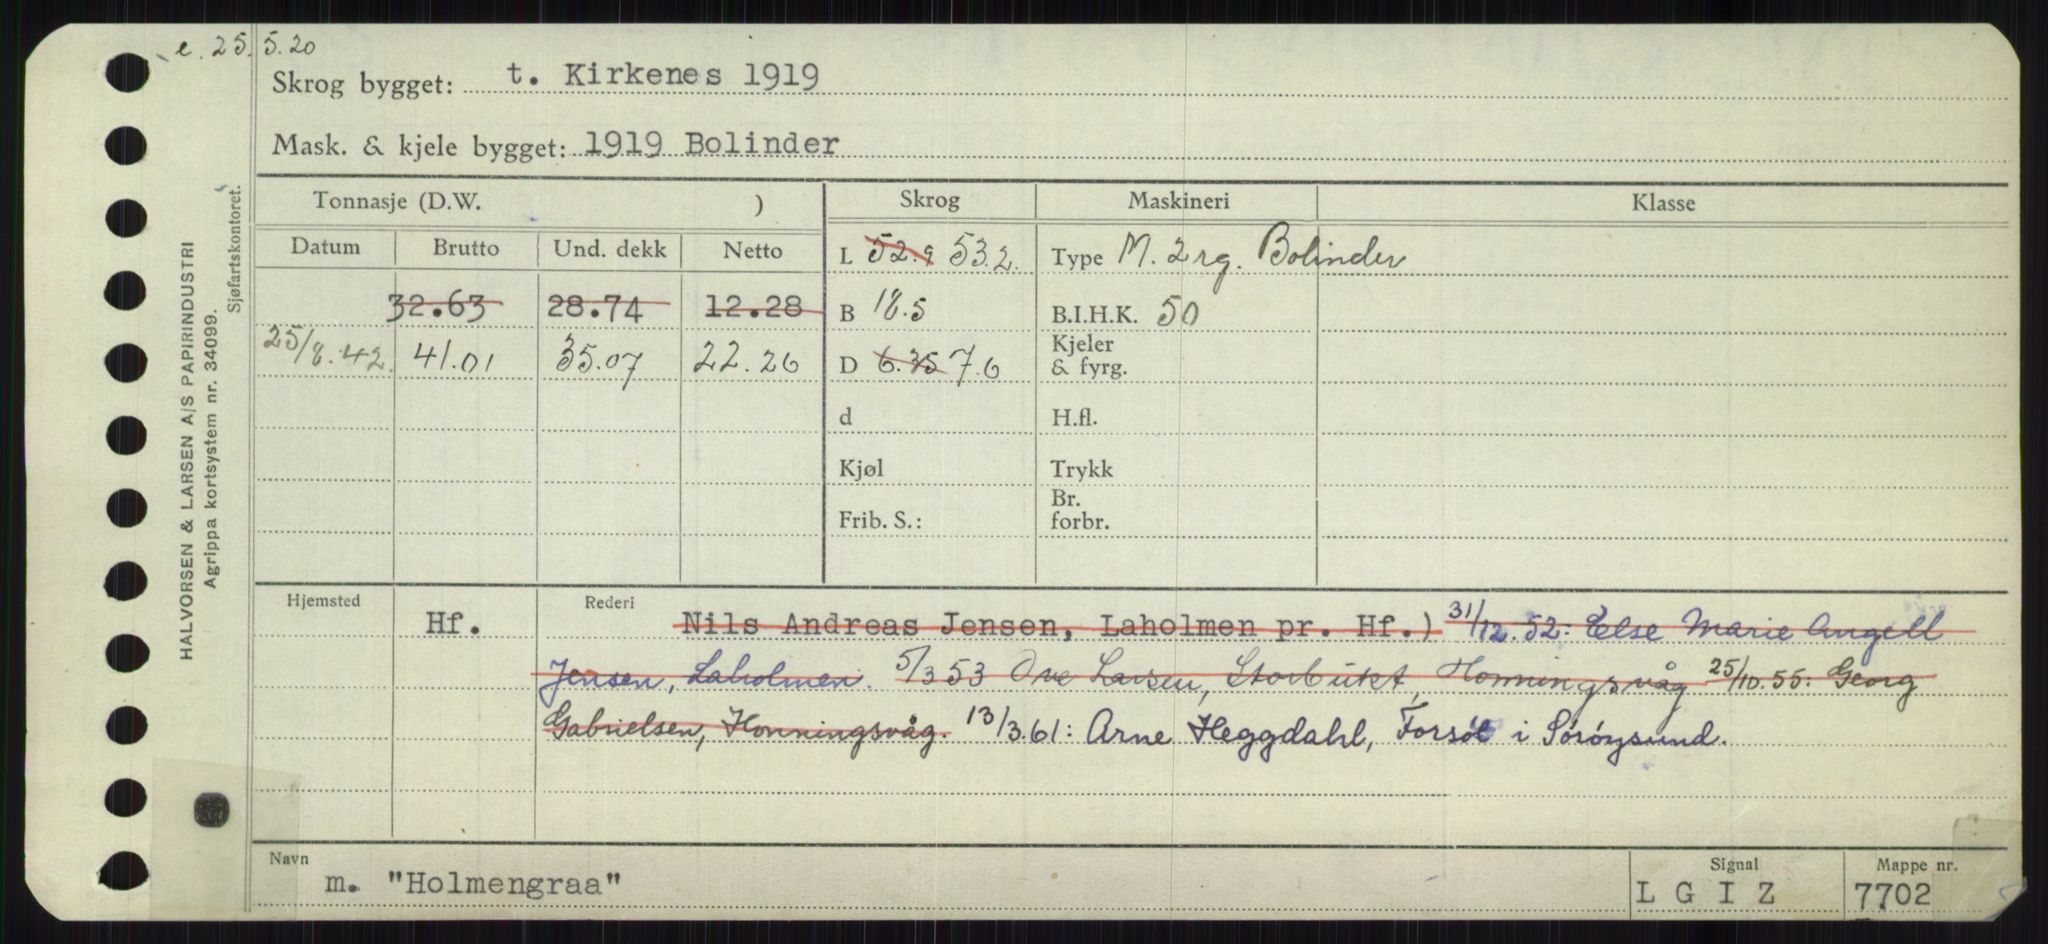 e. 25.5.20
Skrog bygget: t. Kirkenes 1919
Mask. & kjele bygget: 1919 Bolinder
HALVORSEN & LARSEN A/S PAPIRINDUSTRI
Agrippa kortsystem nr. 34099.
Sjøfartskontoret.
Tonnasje (D.W. ) Skrog Maskineri Klasse
Datum Brutto Und. dekk Netto L 52.9 53.2. Type M. 2 rg. Bolinder
32.63 28.74 12.28 B 18.5 B.I.H.K. 50
25/8.42. 41.01 35.07 22.26 D 6.35 7.6 Kjeler & fyrg.
d H.fl.
Kjøl Trykk
Frib. S.: Br. forbr.
Hjemsted Rederi
Hf. Nils Andreas Jensen, Laholmen pr. Hf.) 31/12.52: Else Marie Angell
Jensen, Laholmen. 5/3 53 Ove Larsen, Storbukt, Honningsvåg 25/10.55: Georg
Gabrielsen, Honningsvåg. 13/3.61: Arne Heggdahl, Forsøl i Sørøysund.
Navn Signal Mappe nr.
m. "Holmengraa" L G I Z 7702